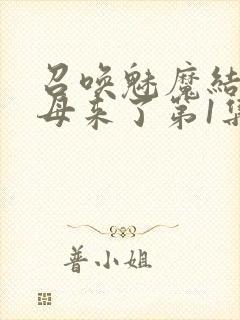 召唤魅魔结
母来了第1集
普小姐